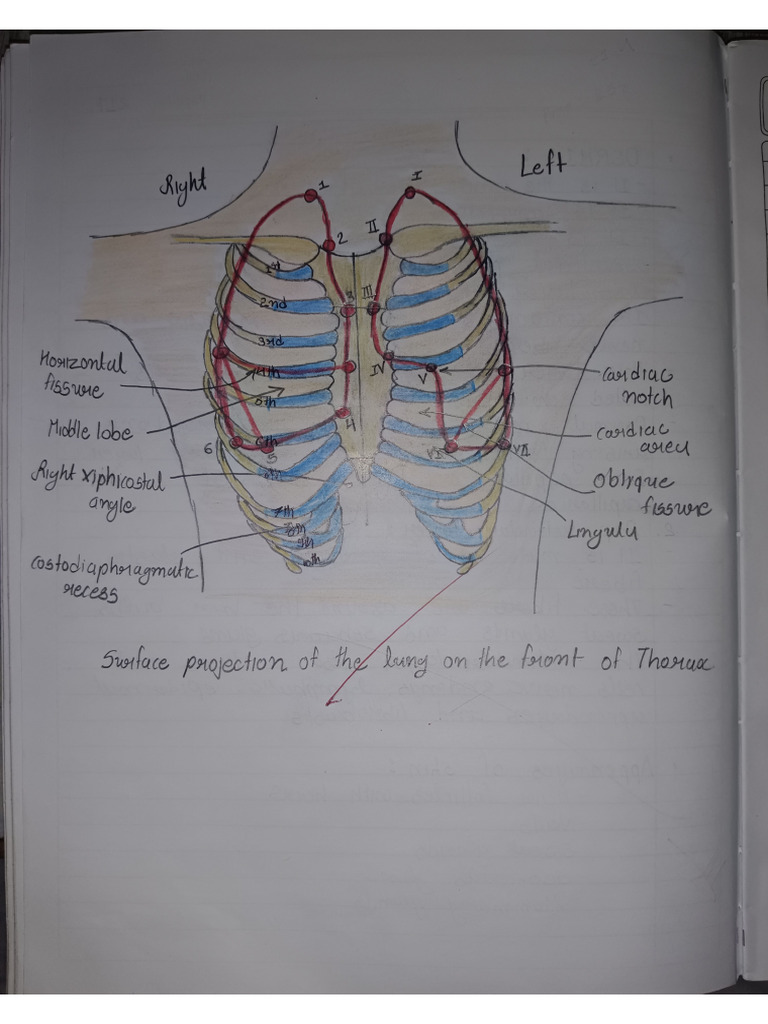 Right
Left
1
I
2
II
1st
2nd
3
III
3rd
4th
IV
V
5th
4
6
6th
5
VI
VII
7th
8th
9th
10th
Horizontal
fissure
Middle lobe
Right xiphicostal
angle
Costodiaphragmatic
recess
Cardiac
notch
Cardiac
area
Oblique
fissure
Lingula
Surface projection of the lung on the front of Thorax